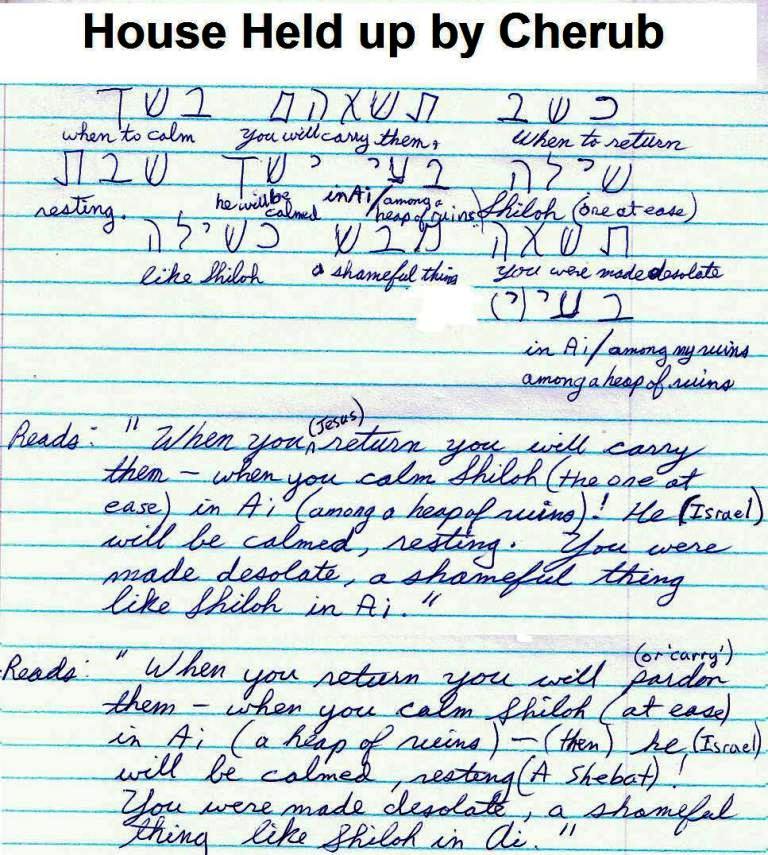 House Held up by Cherub
כשב תשאהם בשך
when to calm you will carry them, When to return
שילה בעי ישך שבת
resting. he will be calmed in Ai/among a heap of ruins Shiloh (one at ease)
תשאה מבש כשילה
like Shiloh a shameful thing you were made desolate
בעי(י)
in Ai/among my ruins
among a heap of ruins
Reads: "When you (Jesus) return you will carry
them – when you calm Shiloh (the one at
ease) in Ai (among a heap of ruins)! He (Israel)
will be calmed, resting. You were
made desolate, a shameful thing
like Shiloh in Ai."
Reads: "When you return you will pardon (or 'carry')
them – when you calm Shiloh (at ease)
in Ai (a heap of ruins) – (then) he (Israel)
will be calmed, resting (A Shebat)!
You were made desolate, a shameful
thing like Shiloh in Ai."